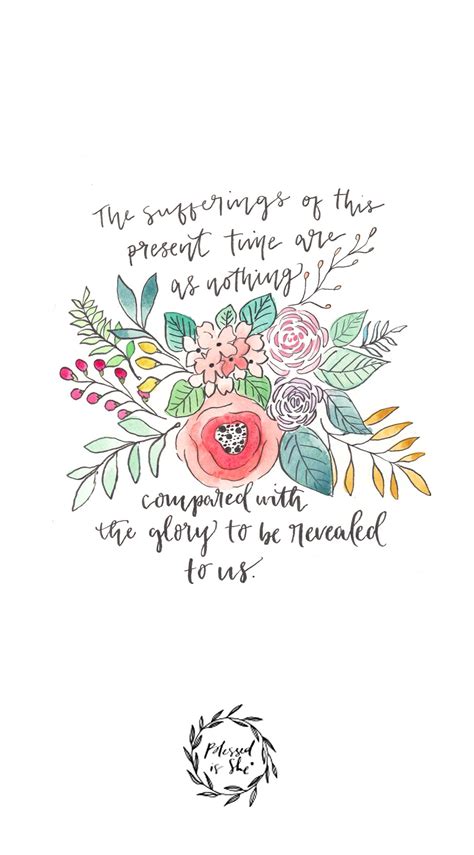 The sufferings of this
present time are
as nothing
compared with
the glory to be revealed
to us.
Blessed
is She